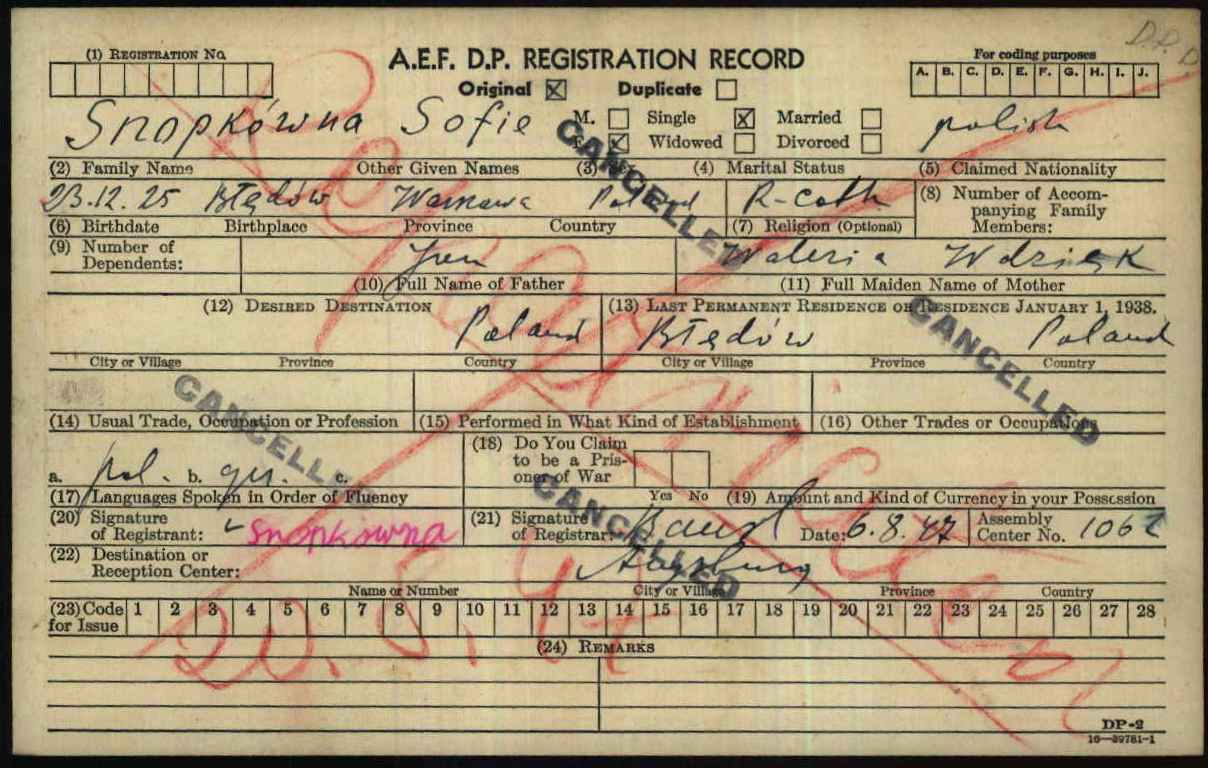 D.P.
(1) REGISTRATION NO.
A.E.F. D.P. REGISTRATION RECORD
For coding purposes
Original ☒ Duplicate ☐
A. B. C. D. E. F. G. H. I. J.
Snopkówna Sofie
M. ☐ Single ☒ Married ☐
F. ☒ Widowed ☐ Divorced ☐
polish
(2) Family Name Other Given Names (3) (4) Marital Status (5) Claimed Nationality
23.12.25 Błędów Warszawa Poland R-cath
(8) Number of Accompanying Family Members:
(6) Birthdate Birthplace Province Country (7) Religion (Optional)
(9) Number of Dependents:
Waleria
(10) Full Name of Father (11) Full Maiden Name of Mother
(12) DESIRED DESTINATION (13) LAST PERMANENT RESIDENCE OR RESIDENCE JANUARY 1, 1938.
Poland Błędów Poland
City or Village Province Country City or Village Province Country
(14) Usual Trade, Occupation or Profession (15) Performed in What Kind of Establishment (16) Other Trades or Occupations
a. pol. b. ger. c.
(18) Do You Claim to be a Prisoner of War
Yes No
(17) Languages Spoken in Order of Fluency (19) Amount and Kind of Currency in your Possession
(20) Signature of Registrant: Snopkowna (21) Signature of Registrar: Date: 6.8.47 Assembly Center No. 1062
(22) Destination or Reception Center: Augsburg
Name or Number City or Village Province Country
(23) Code for Issue 1 2 3 4 5 6 7 8 9 10 11 12 13 14 15 16 17 18 19 20 21 22 23 24 25 26 27 28
(24) REMARKS
DP-2
16—39781-1
CANCELLED
CANCELLED
CANCELLED
CANCELLED
Repatriated
20. 8. 47